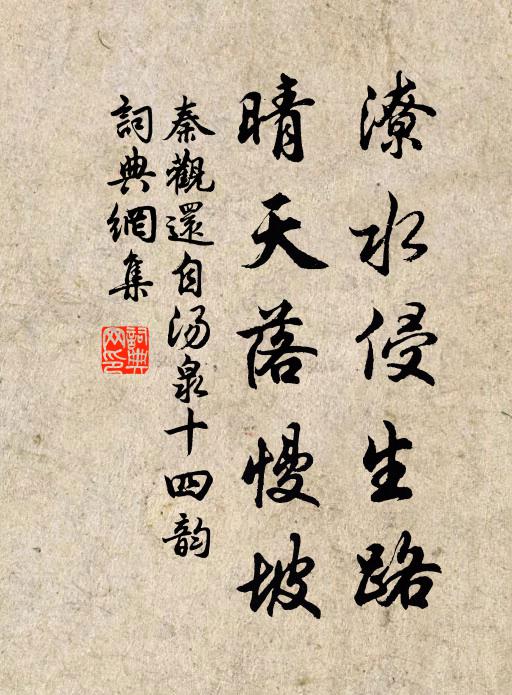 潦水侵生路
晴天落慢坡
秦觀還自湯泉十四韵
詞典網集
詞典
网印